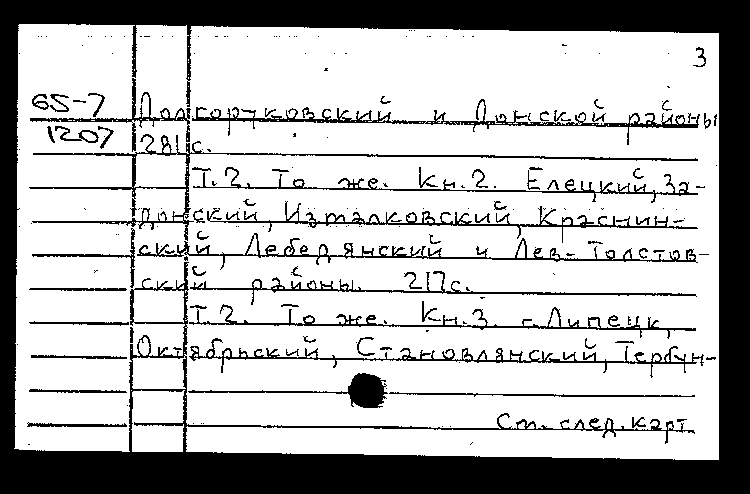 3
65-7 Долгоруковский и Донской районы
1207 281с.
Т.2. То же. Кн.2. Елецкий, За-
донский, Измалковский, Краснин-
ский, Лебедянский и Лев-Толстов-
ский районы. 217с.
Т.2. То же. Кн.3. г.Липецк,
Октябрьский, Становлянский, Тербун-
См. след. карт.